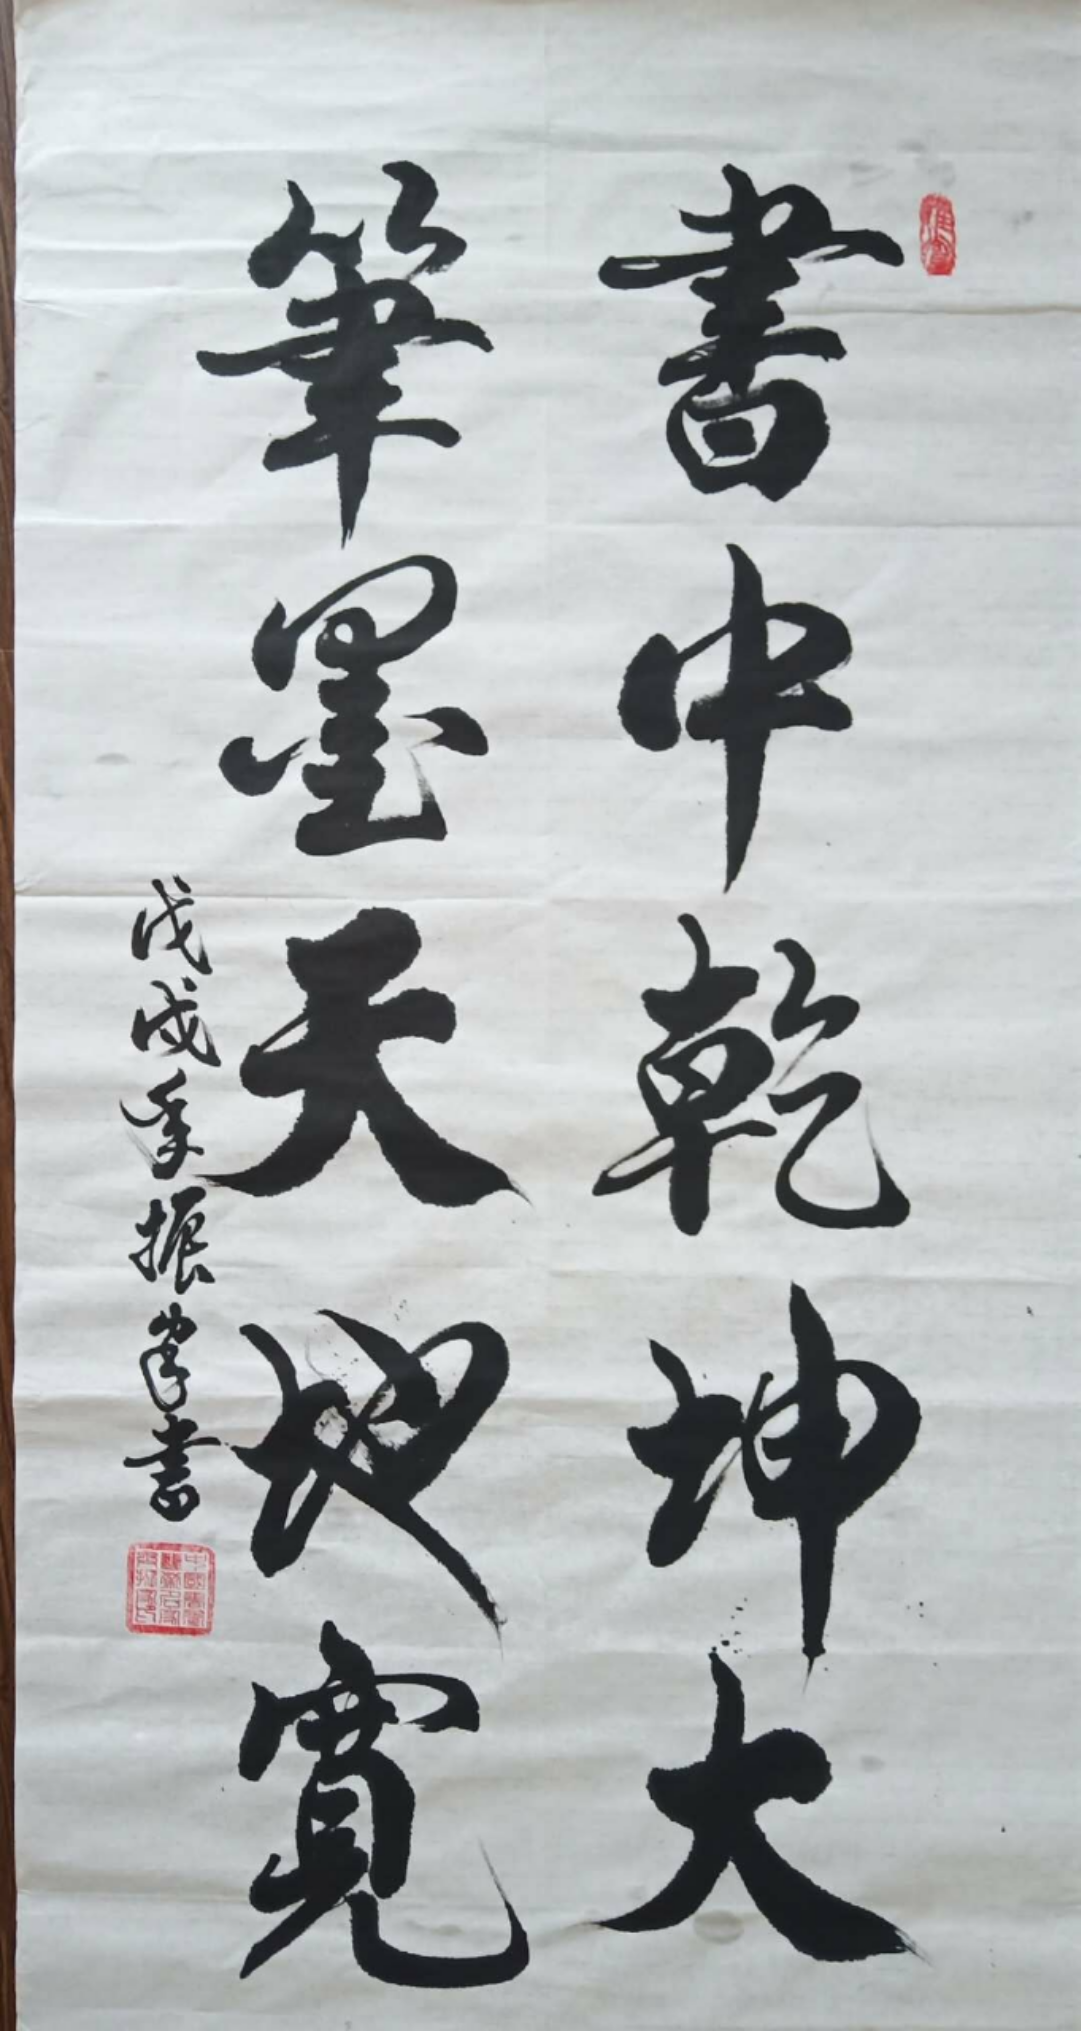 書中乾坤大
筆墨天地寬
戊戌年振峯書